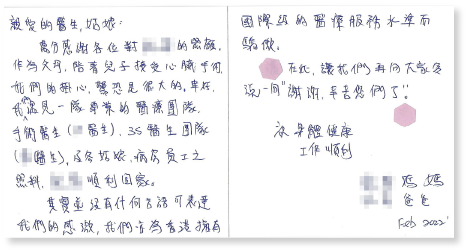 親愛的醫生, 姑娘:
萬分感謝各位對 的照顧,
作為父母, 陪着兒子接受心臟手術,
我們的擔心, 驚恐是很大的, 幸好,
我們遇見一隊專業的醫療團隊,
手術醫生 ( 醫生), 3S 醫生團隊
( 醫生), 及各姑娘, 病房員工之
照料, 順利回家。
其實並沒有什何言語可表達
我們的感激, 我們皆為香港擁有
國際級的醫療服務水準而
驕傲。
在此, 讓我們再向大家各
說一句"謝謝, 辛苦您們了"!
祝 身體健康
工作順利
媽媽
爸爸
Feb 2022